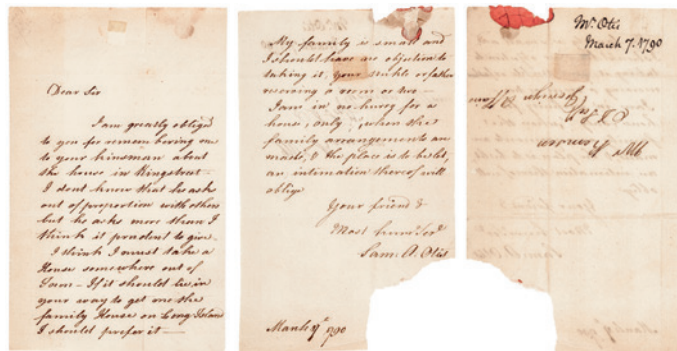 Dear Sir
I am greatly obliged
to you for remembering me
to your kinsman about
the house in Kingstreet
I dont know that he asks
out of proportion with others
but he asks more than I
think it prudent to give.
I think I must take a
House somewhere out of
Town – If it should lie in
your way to get me the
family House on Long Island
I should prefer it –
My family is small and
I should have no objection to
taking it, your
receiving a room or two –
I am in no hurry for a
house, only, when the
family arrangements are
made, & the place is to be let,
an intimation thereof will
oblige
Your friend &
Most hum Serv
Sam A. Otis
March 7 1790
Mr. Otis
March 7. 1790
Mr